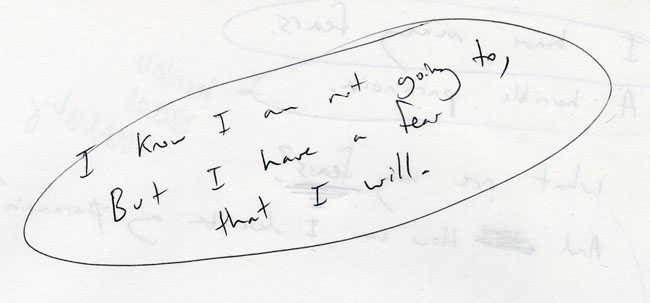 I know I am not going to,
But I have a fear
that I will.